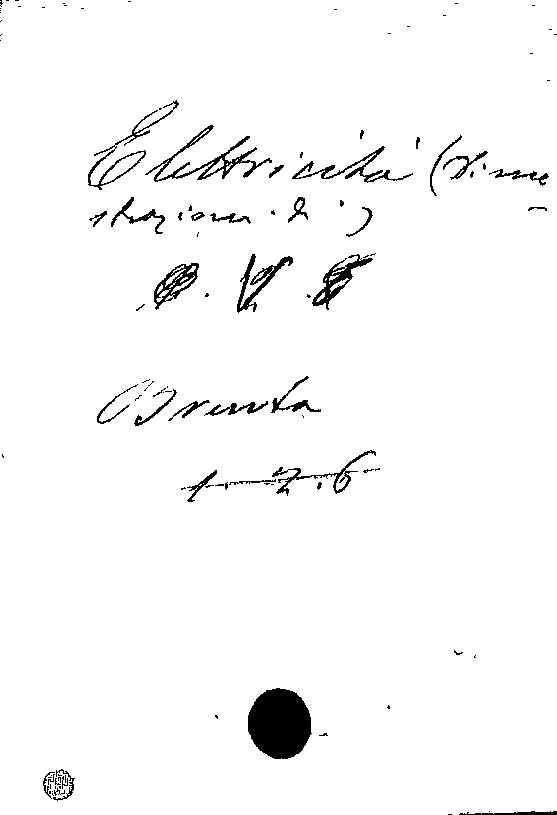 Elettricità (Dimo
strazioni di)
Brenta
1. 2. 6